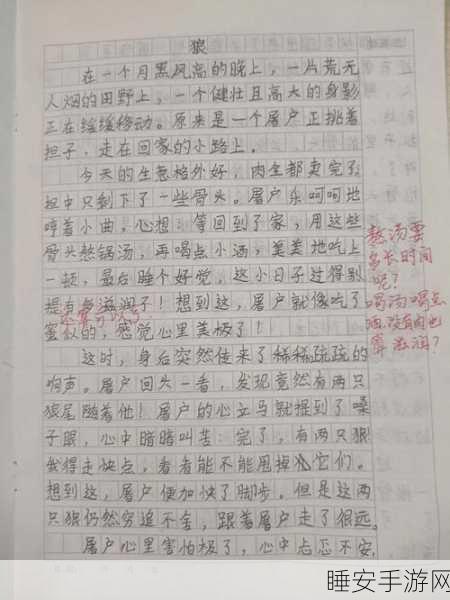 狼
在一个月黑风高的晚上，一片荒无
人烟的田野上，一个健壮且高大的身影
正在缓缓移动。原来是一个屠户正挑着
担子，走在回家的小路上。
今天的生意格外好，肉全都卖完了，
担中只剩下了一些骨头。屠户乐呵呵地
哼着小曲，心想：等回到了家，用这些
骨头熬锅汤，再喝点小酒，美美地吃上
一顿，最后睡个好觉，这小日子过得别
提有多滋润了！想到这，屠户就像吃了
蜜似的，感觉心里美极了！
这时，身后突然传来了稀稀疏疏的
响声。屠户回头一看，发现竟然有两只
狼尾随着他！屠户的心立马就提到了嗓
子眼，心中暗暗叫苦：完了，有两只狼
我得走快点，看看能不能甩掉它们。
想到这，屠户便加快了脚步。但是这两
只狼仍然穷追不舍，跟着屠户走了很远。
屠户心里害怕极了，心中忐忑不安，
熬汤要
多长时间
呢？
喝汤喝点
酒，没有肉也
算滋润？
睡安手游网